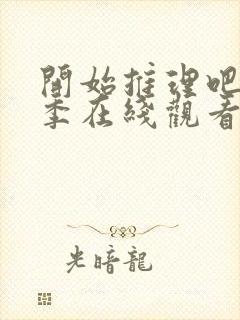 開始推理吧
季在綫觀看
光暗龍